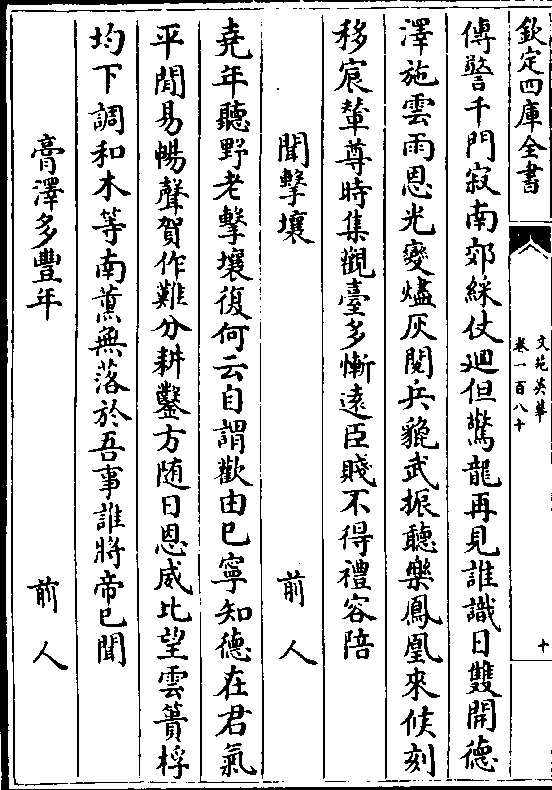 欽定四庫全書
文苑英華
卷一百八十
十
傳警千門寂南郊綵仗迴但驚龍再見誰識日雙開德
澤施雲雨恩光變燼灰閱兵貔武振聽樂鳳凰來候刻
移宸輦尊時集觀臺多慚遠臣賤不得禮容陪
聞擊壤 前人
堯年聽野老擊壤復何云自謂歡由已寧知德在君氣
平聞易暢聲賀作難分耕鑿方随日恩威比望雲蕢桴
均下調和木等南薫無落於吾事誰將帝已聞
膏澤多豐年 前人